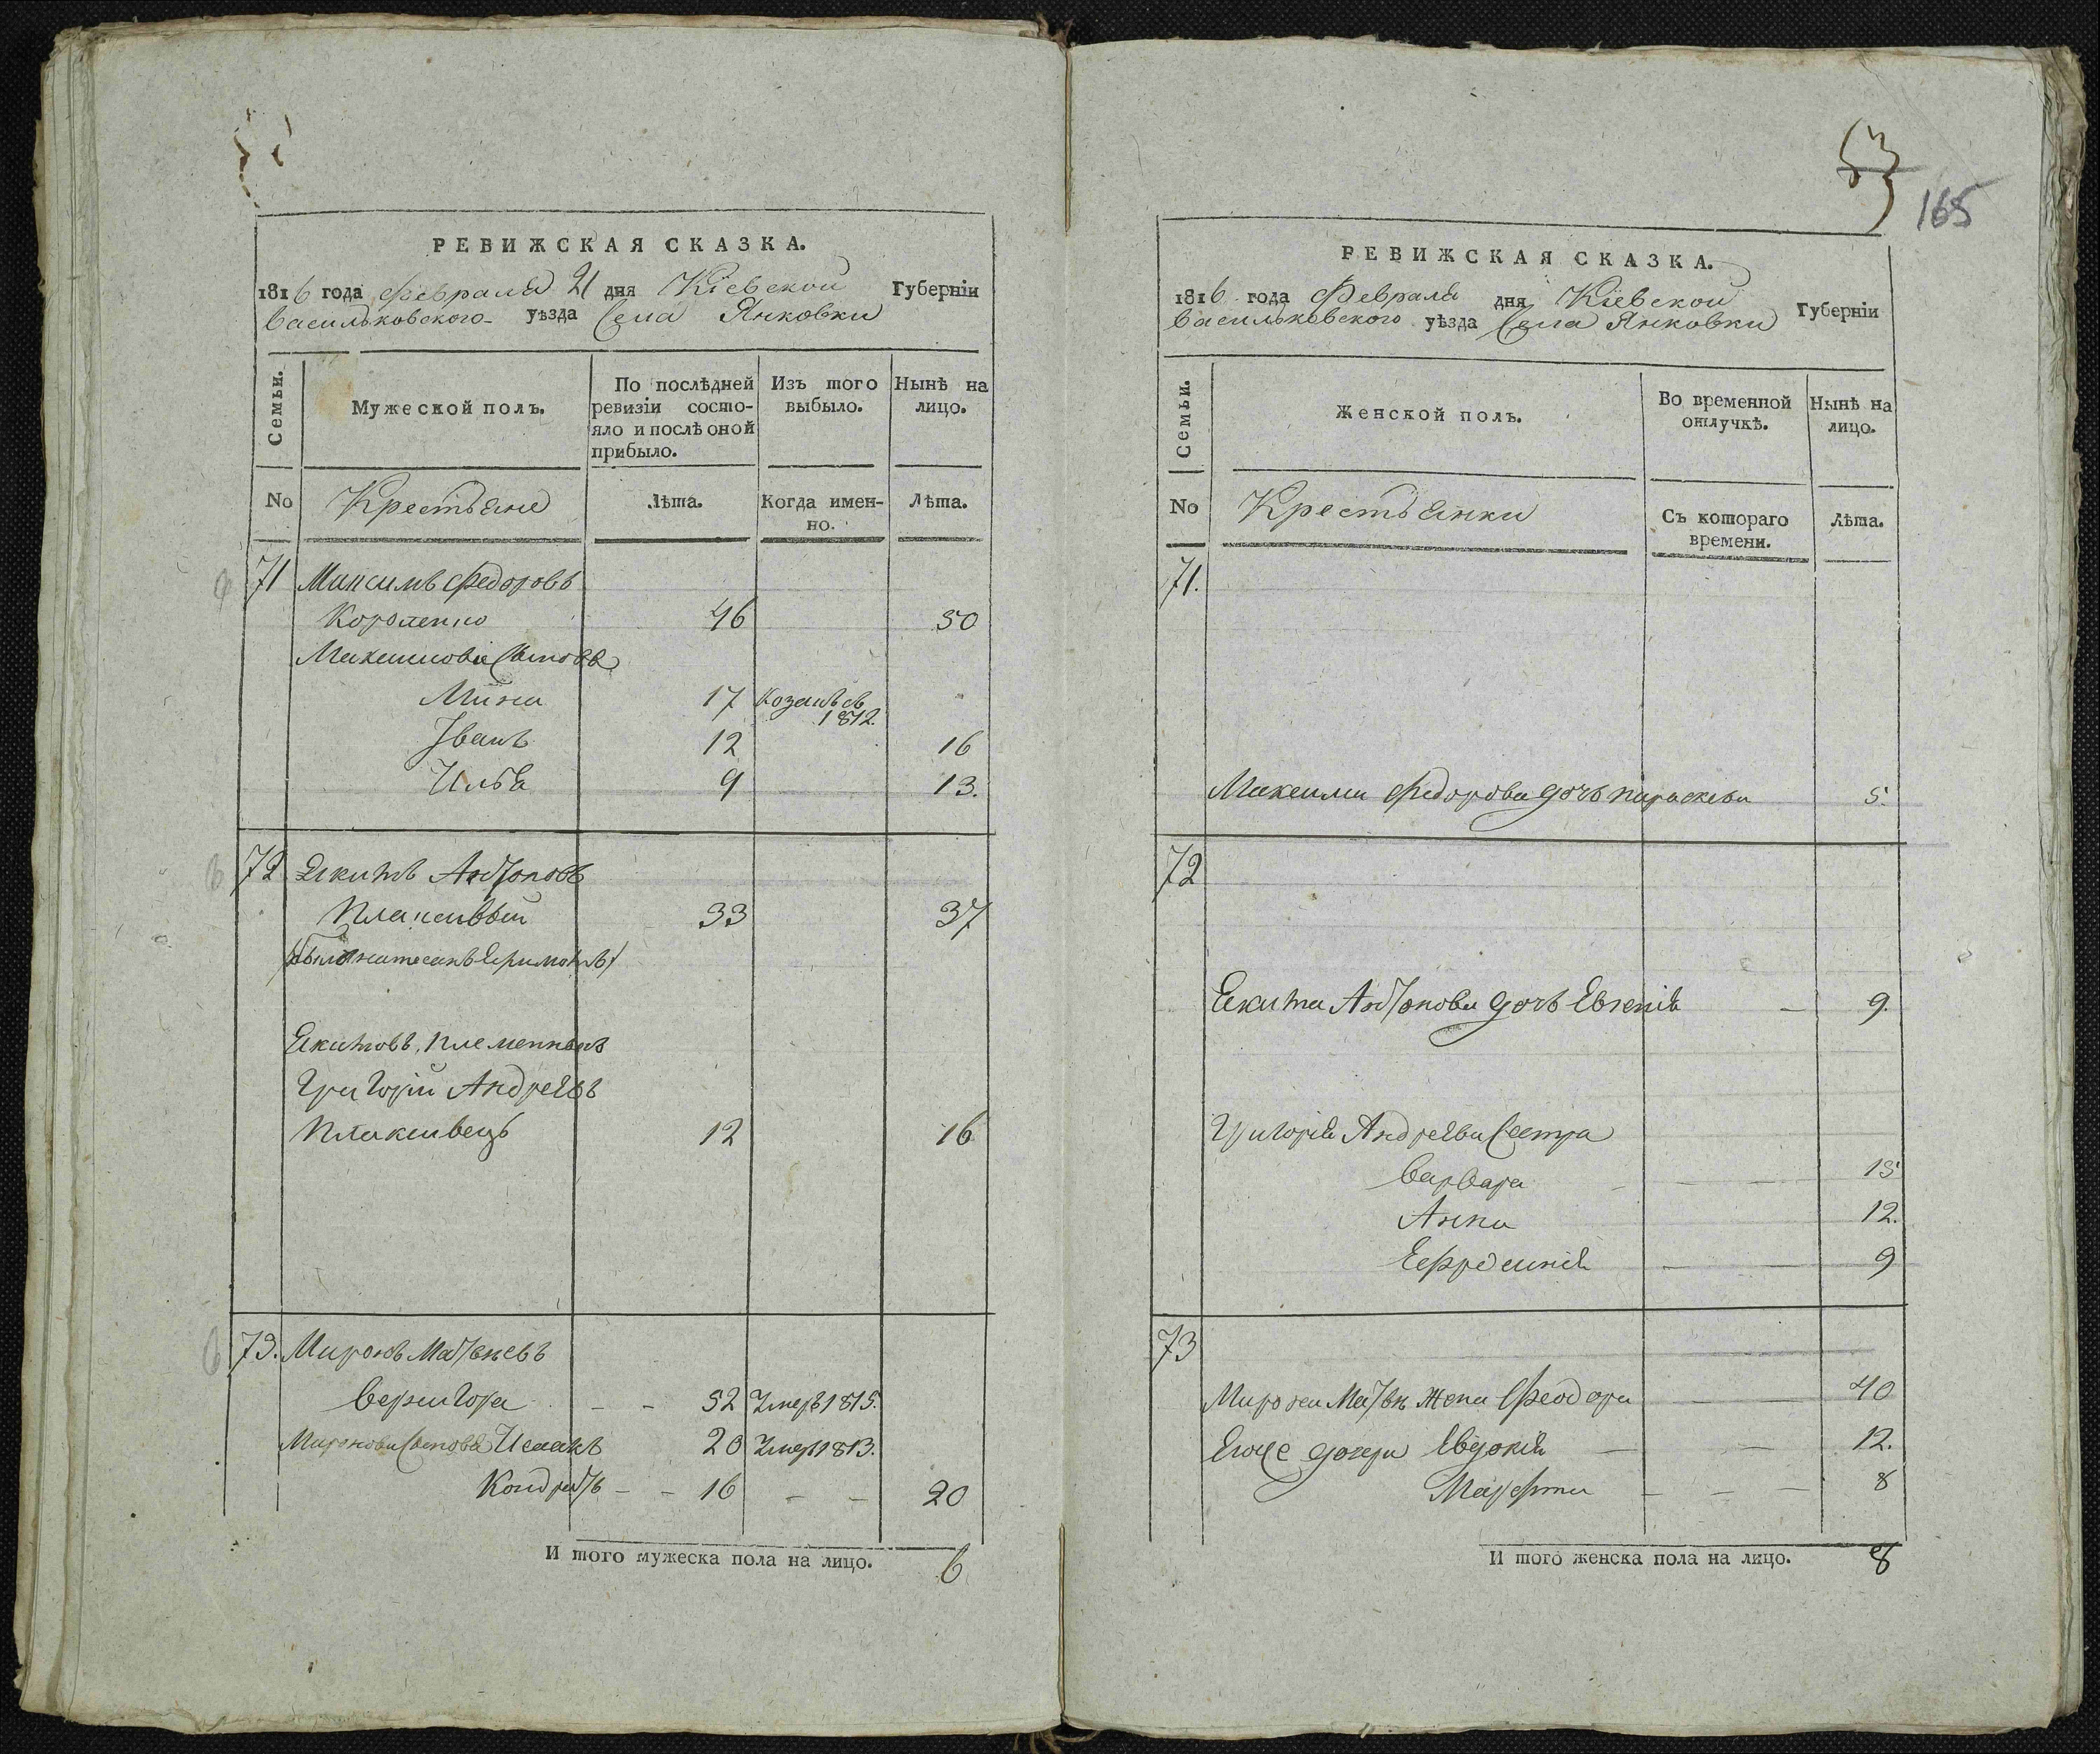 РЕВИЖСКАЯ СКАЗКА.
1816 года Февраля 21 дня Кіевской Губерніи
Васильковского уѣзда Села Янковки
Семьи.
Мужеской полъ.
По послѣдней ревизіи состояло и послѣ оной прибыло.
Изъ того выбыло.
Нынѣ на лицо.
No
Крестьяне
Лѣта.
Когда именно.
Лѣта.
71 Максимъ Федоровъ
Короленко 46 50
Максимовы Сыновья
Мина 17 1812.
Іванъ 12 16
Илья 9 13.
72 Екимъ Антоновъ
33 37
Екимовъ племенникъ
Григорій Андреевъ
Плаксивецъ 12 16
73. Миронъ Матвѣевъ
Вернигора - - 52 Умеръ 1815.
Мироновы Сыновья Исаакъ 20 Умеръ 1813.
Кондратъ - - 16 - - 20
И того мужеска пола на лицо. 6
53
165
РЕВИЖСКАЯ СКАЗКА.
1816 года Февраля дня Кіевской Губерніи
Васильковского уѣзда Села Янковки
Семьи.
Женской полъ.
Во временной отлучкѣ.
Нынѣ на лицо.
No
Крестьянки
Съ котораго времени.
Лѣта.
71.
Максима Федорова дочь параскева 5.
72
Екима Антонова дочь Евгенія - 9.
Григорія Андреева Сестра
Варвара - - - 15
Анна 12.
Ефросинія - - 9
73
Мирона Матвѣ. Жена Феодора - - 40
Егоже дочери Евдокія - - 12.
Марфта - - - 8
И того женска пола на лицо. 8